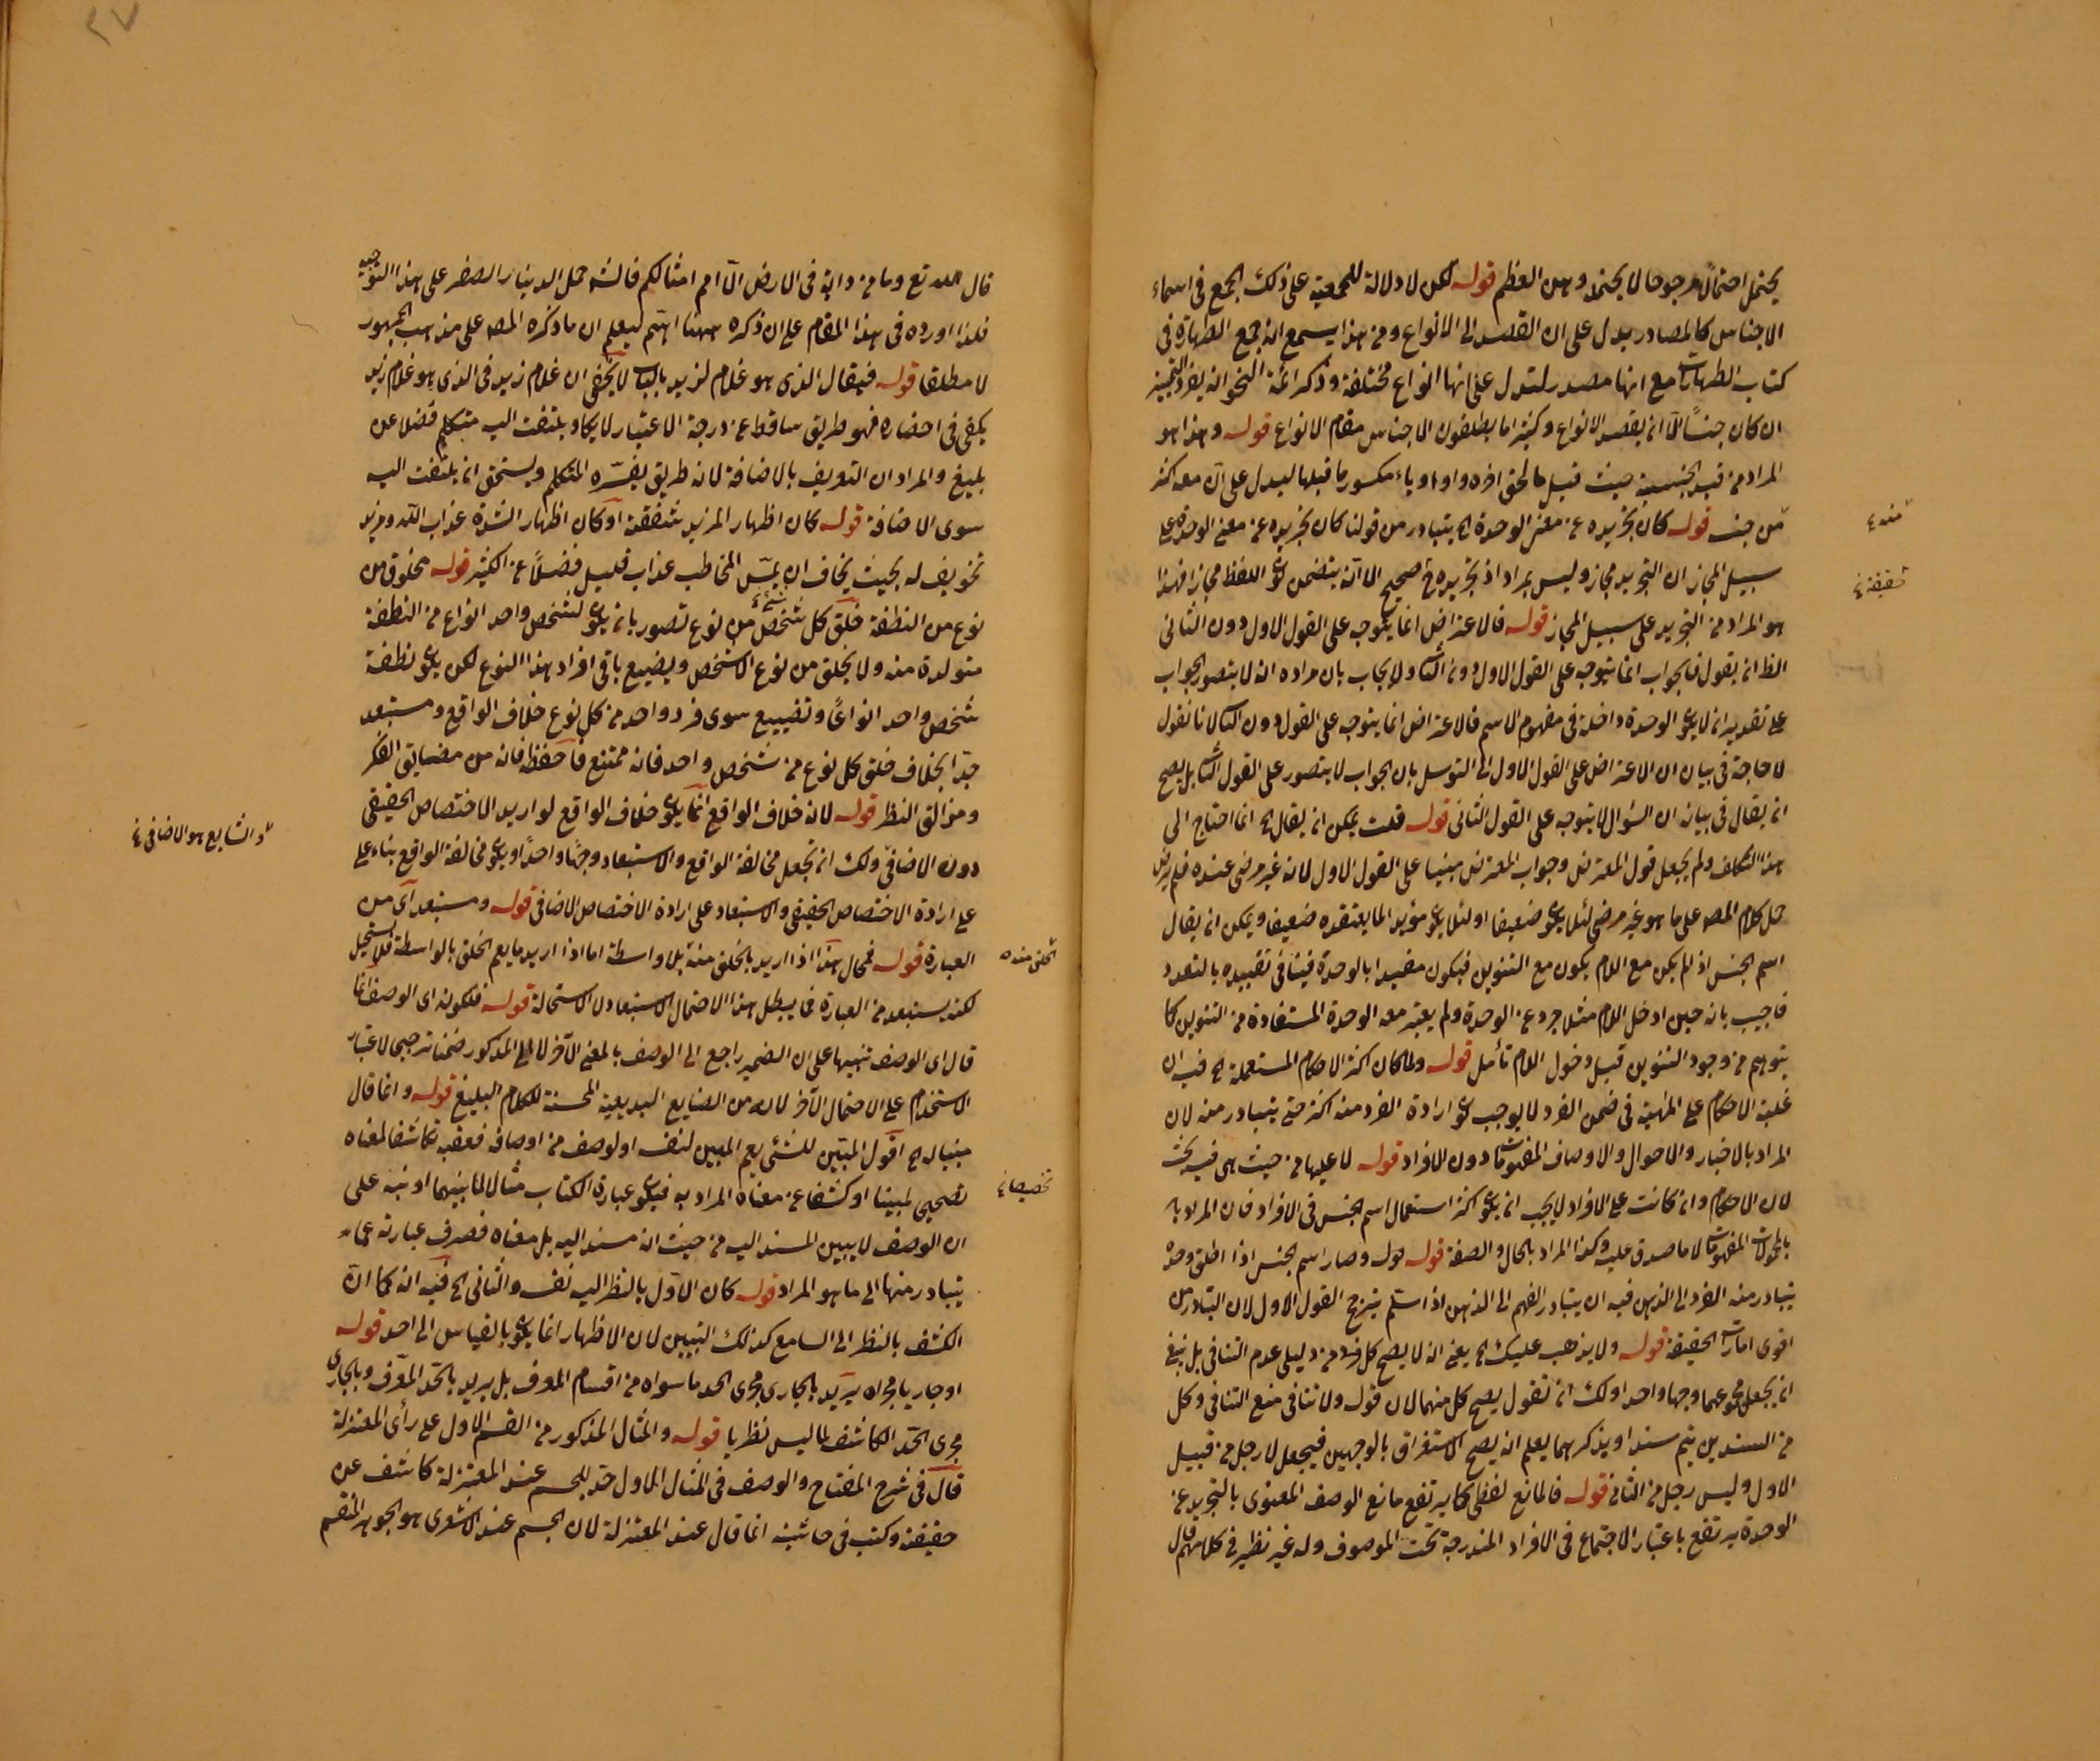 يحتمل احتمالا مرجوحا لا يحتمله وهن العظم قوله لكن لا دلالة للجمعية على ذلك الجمع فى اسماء
الاجناس كالمصادر يدل على ان القصد الى الانواع ومن هذا يسمع انه جمع الطهارة فى
كتاب الطهارات مع انها مصدر لتدل على انها انواع مختلفة وذكر ائمة النحو انه يفرد التمييز
ان كان جنسًا الا ان يقصد الانواع وكثيرا ما يطلقون الاجناس مقام الانواع قوله وهذا هو
المراد من قيد الجنسية حيث قيل ما لحق اخره واو او ياء مكسور ما قبلها ليدل على ان معه اكثر
من جنسه قوله كان تجريده عن معنى الوحدة الخ يتبادر من قولنا كان تجريده عن معنى الوحدة على
سبيل المجاز ان التجريد مجاز وليس بمراد اذ تجريده صحيح الا انه يتضمن كون اللفظ مجازا فهذا
هو المراد من التجريد على سبيل المجاز قوله فالاعتراض انما يتوجه على القول الاول دون الثانى
الظ ان يقول فالجواب انما يتوجه على القول الاول دون الثانى ولا يجاب بان مراده انه لا يتصور الجواب
على تقدير ان لا يكون الوحدة داخلة فى مفهوم الاسم فالاعتراض انما يتوجه على القول دون الثانى لانا نقول
لا حاجة فى بيان ان الاعتراض على القول الاول الى التوسل بان الجواب لا يتصور على القول الثانى بل يصح
ان يقال فى بيانه ان السؤال لا يتوجه على القول الثانى قوله قلت يمكن ان يقال الخ انما احتاج الى
هذا التكلف ولم يجعل قول المعترض وجواب المعترض مبنيا على القول الاول لانه غير مرضى عنده فلم يرض
حمل كلام المص على ما هو غير مرضى لئلا يكون ضعيفا او لئلا يكون مؤيد الما يعتقده ضعيفا ويمكن ان يقال
اسم الجنس اذ لم يكن مع اللام يكون مع التنوين فيكون مقيدا بالوحدة فينافى تقييده بالتعدد
فاجيب بانه حين ادخل اللام مثلا جرد عن الوحدة ولم يعتبر معه الوحدة المستفادة من التنوين كا
يتوهم من وجود التنوين قبل دخول اللام تأمل قوله ولما كان اكثر الاحكام المستعملة الخ فيه ان
غلبة الاحكام على الماهية فى ضمن الفرد لا يوجب كون ارادة الفرد منه اكثر حتى يتبادر منه لان
المراد بالاخبار والاحوال والاوصاف المفهومات دون الافراد قوله لا عليها من حيث هى فيه بحث
لان الاحكام وان كانت على الافراد لا يجب ان يكون اكثر استعمال اسم الجنس فى الافراد فان المراد به
بالمحمولات المفهومات لا ما صدق عليه وكذا المراد بالحال والصفة قوله وصار اسم الجنس اذا اطلق وحده
يتبادر منه الفرد الى الذهن فيه ان يتبادر الفهم الى الذهن اذا استلم يترجح القول الاول لان التبادر من
اقوى امارات الحقيقة قوله ولا يذهب عليك الخ يعنى انه لا يصح كل فرد من دليلى عدم التنافى بل ينبغى
ان يجعل مجموعهما وجها واحدا ولك ان تقول يصح كل منهما لان قوله ولا تنافى منع التنافى وكل
من السندين يتم سندا ويذكر بهما يعلم انه يصح الاستغراق بالوجهين فيجعل لا رجل من قبيل
الاول وليس رجل من الثانى قوله فالمانع لفظى كما يرتفع مانع الوصف المعنوى بالتجريد عن
الوحدة يرتفع باعتبار الاجتماع فى الافراد المندرجة تحت الموصوف وله غير نظير فى كلامهم قال
منه
حقيقة
٢٧
قال الله تع وما من دابة فى الارض الا امم امثالكم قالته حمل الدينار الصفر على هذا التوجيه
فلذا اورده فى هذا المقام على ان ذكره ههنا اهتم ليعلم ان ما ذكره المص على مذهب الجمهور
لا مطلقا قوله فيقال الذى هو غلام لزيد بالباب لا يخفى ان غلام زيد فى الذى هو غلام زيد
يكفى فى احضاره فهو طريق ساقط عن درجة الاعتبار لا يكاد يلتفت اليه متكلم فضلا عن
بليغ والمراد ان التعريف بالاضافة لانه طريق يفسّره المتكلم ويستحق ان يلتفت اليه
سوى الاضافة قوله كان اظهار المزيد شفقة او كان اظهار الشدة عذاب الله ومزيد
تخويف له بحيث يخاف ان يمسّ المخاطب عذاب قليل فضلًا عن الكثير قوله مخلوق من
نوع من النطفة خلق كل شخص من نوع تصور بان يكون لشخص واحد انواع من النطفة
متولدة منه ولا يخلق من نوع الا شخص ويضيع باقى افراد هذا النوع لكن يكون نطفة
شخص واحد انواعًا وتضييع سوى فرد واحد من كل نوع خلاف الواقع ومستبعد
جدا بخلاف خلق كل نوع من شخص واحد فانه ممتنع فاحفظه فانه من مضايق الفكر
ومزالق النظر قوله لانه خلاف الواقع انما يكون خلاف الواقع لو اريد الاختصاص الحقيقى
دون الاضافى ولك ان تجعل مخالفة الواقع والاستبعاد وجهًا واحدًا ويكون مخالفة الواقع بناء على
على ارادة الاختصاص الحقيقى والاستبعاد على ارادة الاختصاص الاضافى قوله ومستبعد اى من
العبارة قوله فمحال هذا اذا اريد بالخلق منه بلا واسطة اما اذا اريد ما يعم الخلق بالواسطة فلا يستحيل
لكنه يستبعد من العبارة فما يبطل هذا الاحتمال الاستبعاد لا الاستحالة قوله فلكونه اى الوصف انما
قال اى الوصف تنبيها على ان الضمير راجع الى الوصف بالمعنى الآخر لا الى المذكور ضمنا ترجيحا لاعتبار
الاستخدام على الاحتمال الآخر لانه من الصنايع البديعية المحسنة للكلام البليغ قوله وانما قال
مبنيا له الخ اقول المبيّن للشئ يعم المبين لنفسه او لوصف من اوصافه فعقبه بكاشفا لمعناه
تصحيح لمبينا او كشفا عن معناه المراد به فيكون عبارة الكتاب مثالا لما بينهما او نبه على
ان الوصف لا يبين المسند اليه من حيث انه مسند اليه بل معناه فصرف عبارته عما
يتبادر منها الى ما هو المراد قوله كان الاول بالنظر اليه نفسه والثانى الخ فيه انه كما ان
الكشف بالنظر الى السامع كذلك التبيين لان الاظهار انما يكون بالقياس الى احد قوله
او جاريا مجراه يريد بالجارى مجرى الحد ما سواه من اقسام المعرف بل يريد بالحد المعرّف وبالجارى
مجرى الحد الكاشف لما ليس نظريا قوله والمثال المذكور من القسم الاول على رأى المعتزلة
قال فى شرح المفتاح والوصف فى المثال الاول حد للجسم عند المعتزلة كاشف عن
حقيقة وكتب فى حاشيته انما قال عند المعتزلة لان الجسم عند الاشعرى هو الجوهر المنقسم
والشايع هو الاضافى
الخلق منه
تخصيصا